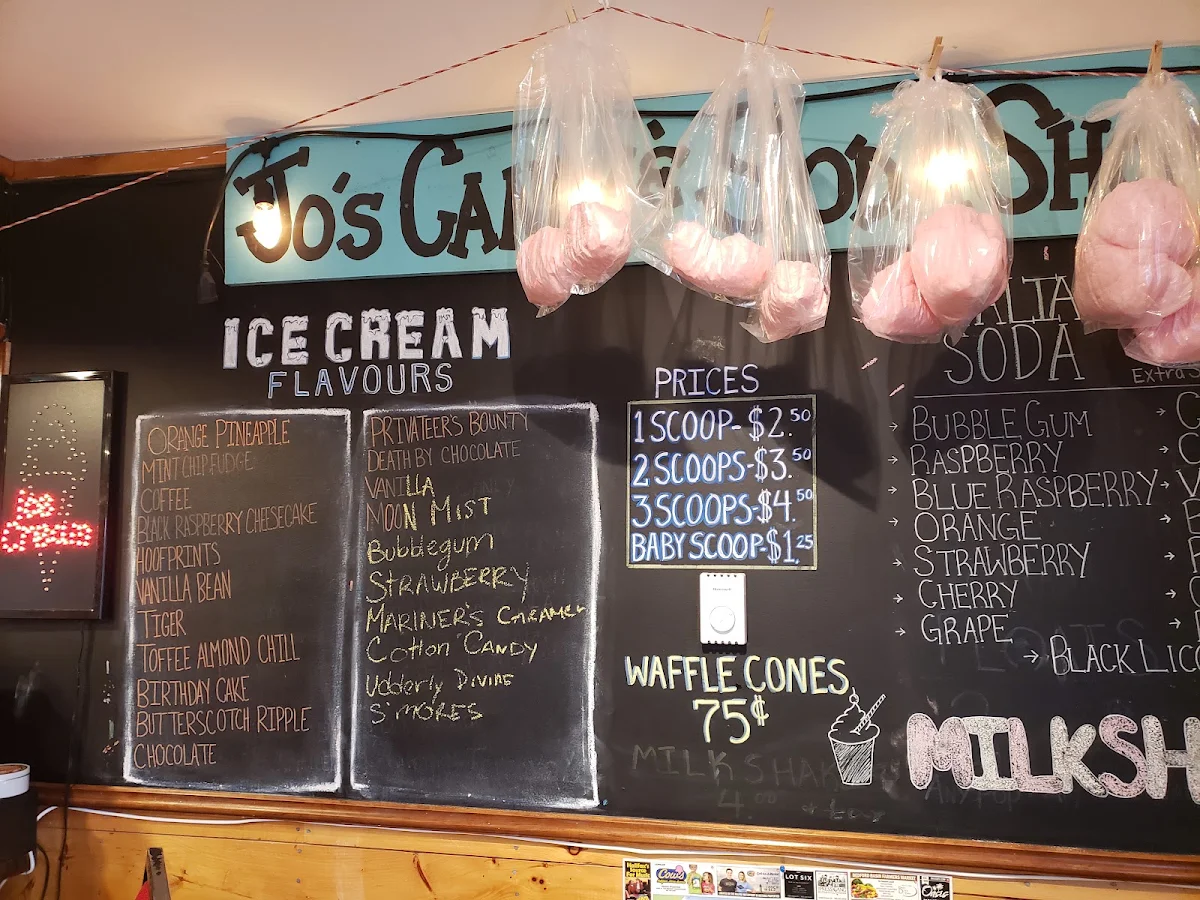 Jo's
ICE CREAM
FLAVOURS
ORANGE PINEAPPLE
MINT CHIP FUDGE
COFFEE
BLACK RASPBERRY CHEESECAKE
HOOFPRINTS
VANILLA BEAN
TIGER
TOFFEE ALMOND CHILL
BIRTHDAY CAKE
BUTTERSCOTCH RIPPLE
CHOCOLATE
PRIVATEER'S BOUNTY
DEATH BY CHOCOLATE
VANILLA
MOON MIST
Bubblegum
STRAWBERRY
MARINER'S CARAMEL
Cotton CANDY
Udderly DIVINE
S'MORES
PRICES
1 SCOOP- $2.50
2 SCOOPS-$3.50
3 SCOOPS-$4.50
BABY SCOOP-$1.25
WAFFLE CONES
75¢
MILKSHAK
4.00
SODA
Extra
BUBBLE GUM
RASPBERRY
BLUE RASPBERRY
ORANGE
STRAWBERRY
CHERRY
GRAPE
BLACK LICO
MILKSH
Ice
Cream
Cows
LOT SIX